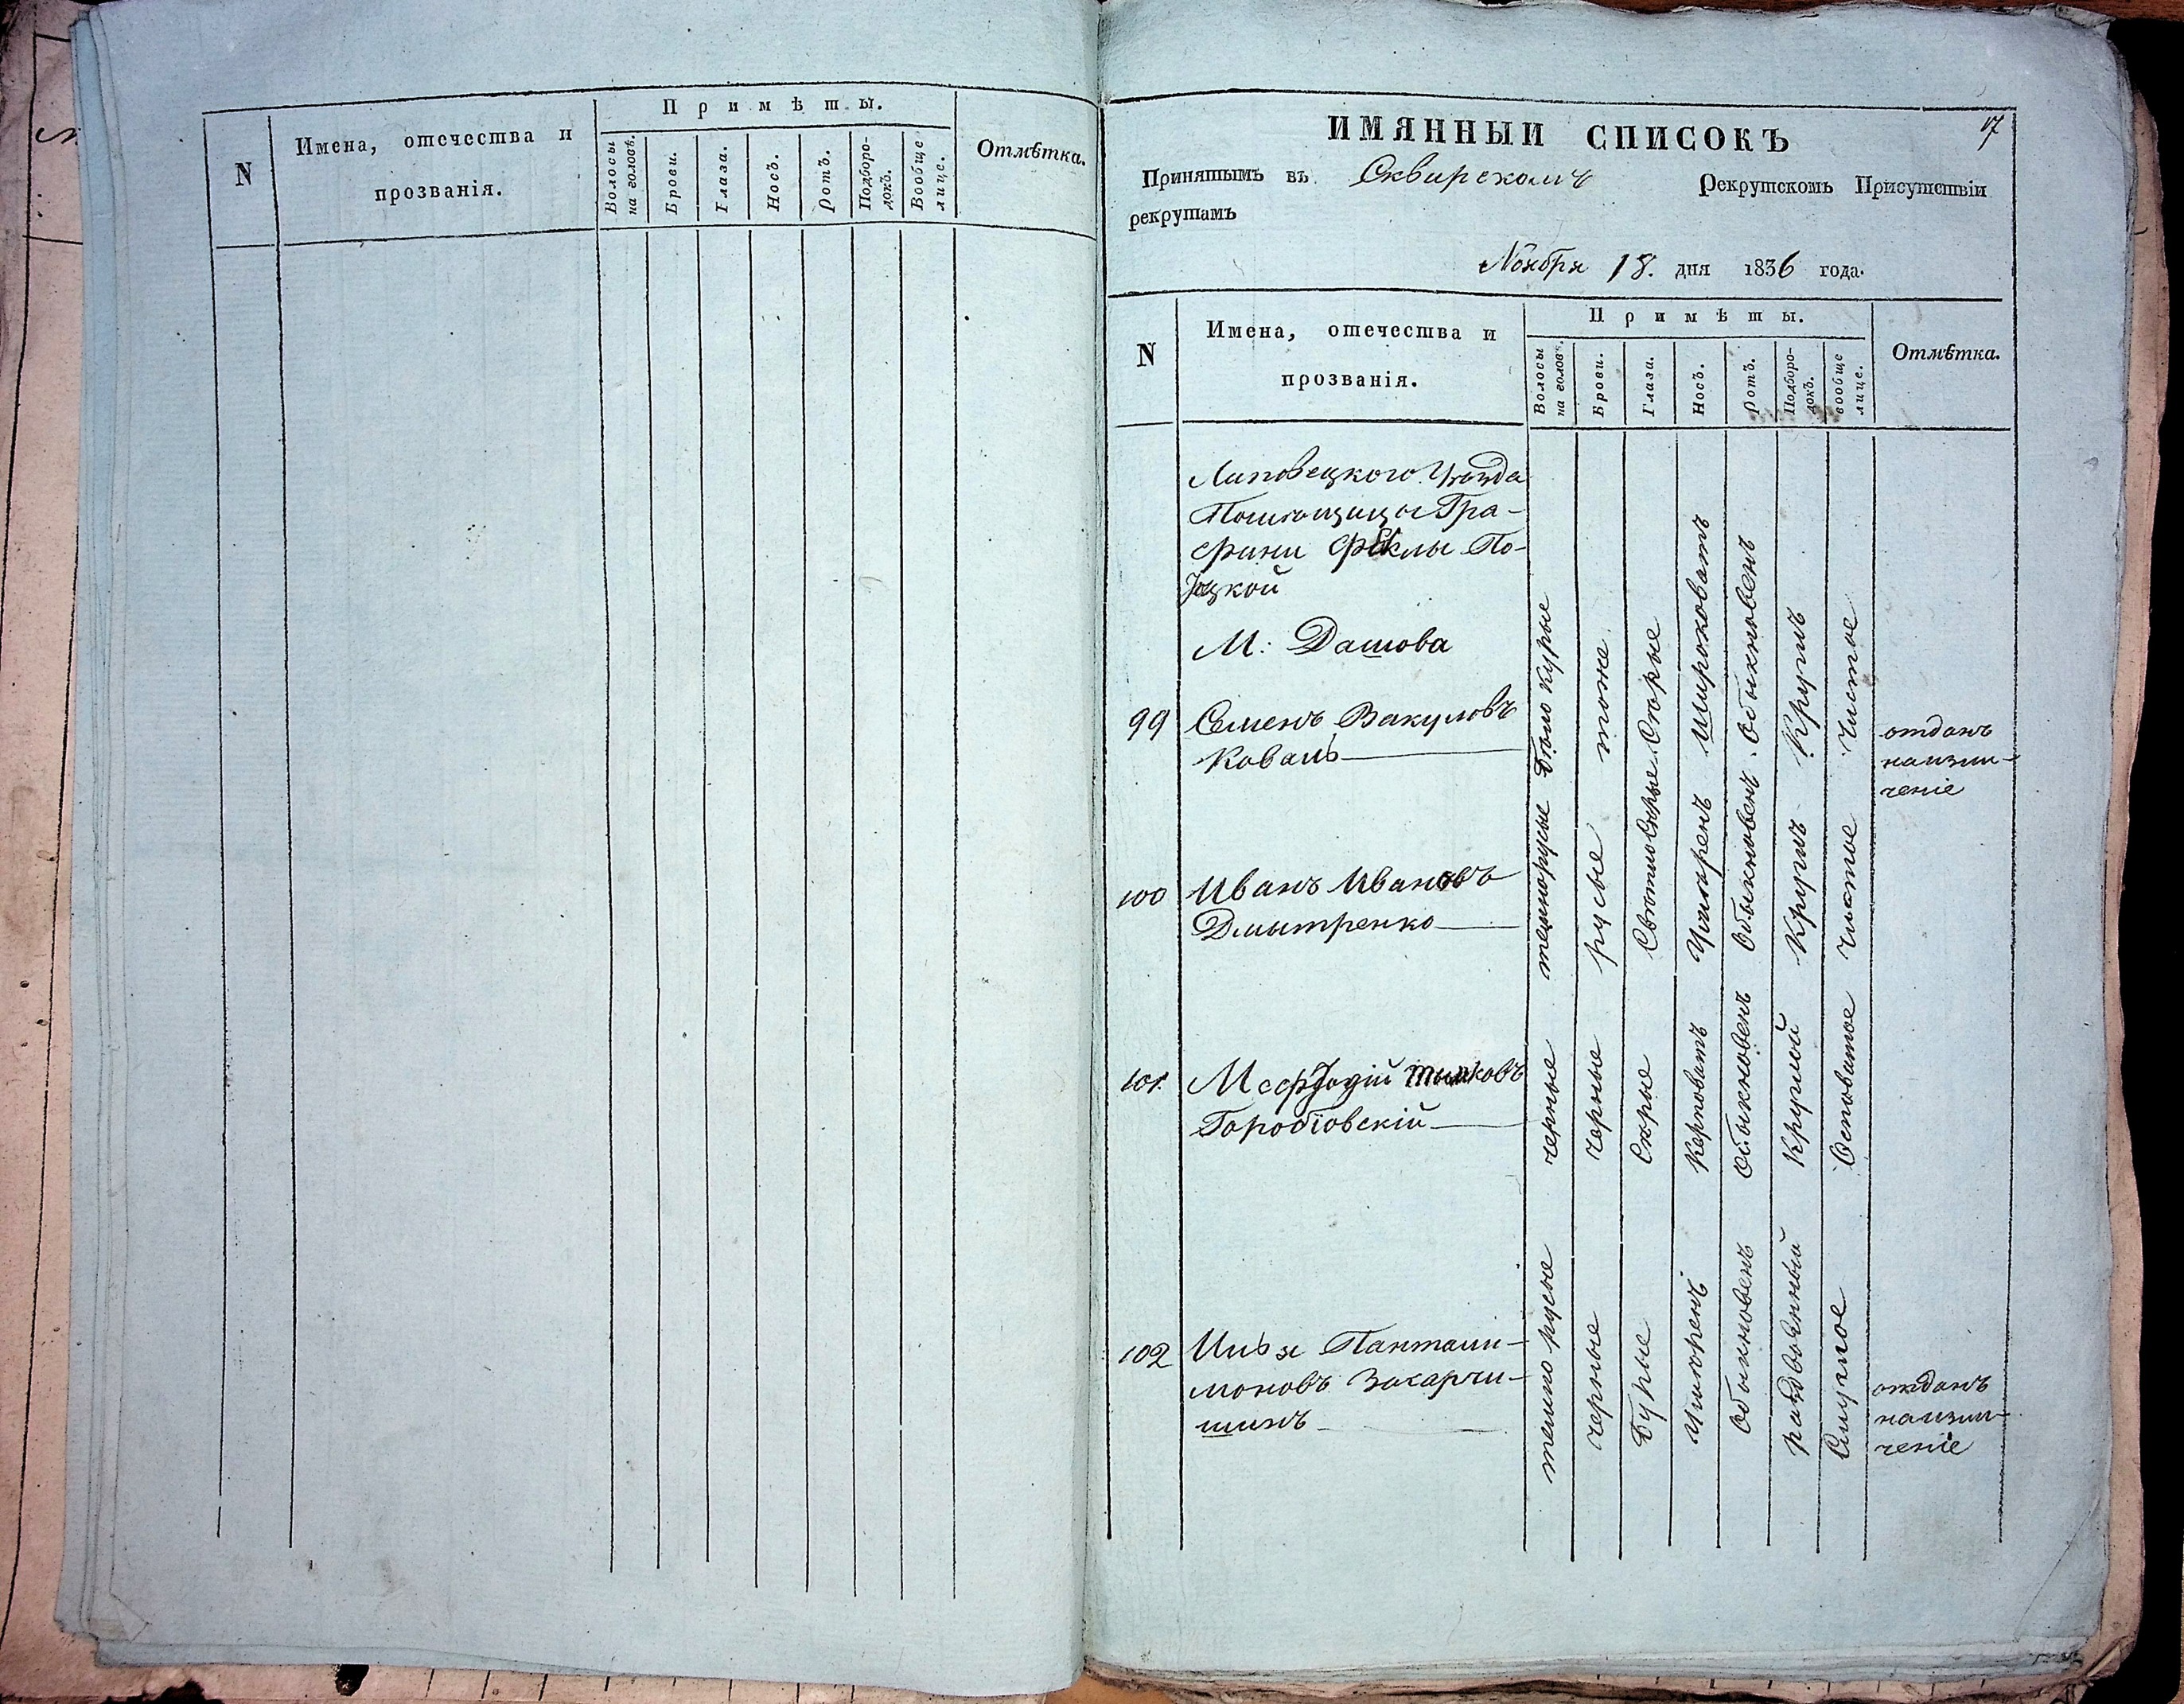 Примѣты.
N
Имена, отечества и
прозванія.
Волосы
на головѣ.
Брови.
Глаза.
Носъ.
Ротъ.
Подборо-
докъ.
Вообще
лице.
Отмѣтка.
17
ИМЯННЫИ СПИСОКЪ
Принятымъ въ Сквирскомъ Рекрутскомъ Присутствіи
рекрутамъ
Ноября 18. дня 1836 года.
N
Имена, отечества и
прозванія.
Примѣты.
Волосы
на голов.
Брови.
Глаза.
Носъ.
Ротъ.
Подборо-
докъ.
вообще
лице.
Отмѣтка.
Липовецкого Уѣзда
Помѣщицы Гра-
фини Феклы По-
тоцкой
М: Дашова
99 Семенъ Вакуловъ
Коваль
бѣло курые
тоже
Сѣрые
Широковатъ
Обыкновенъ
Круглъ
Чистое
отданъ
наизли-
ченіе
100 Иванъ Ивановъ
Дмытренко
темнорусые
русые
Свѣтлосѣрые
Умѣренъ
Обыкновенъ
Круглъ
Чистое
101. Мефодій
Горобіовскій
черные
Черные
Сѣрые
Обыкновенъ
Круглой
102 Илья Пантали-
моновъ Захарчи-
шинъ
темно русые
черные
Бурые
Умѣренъ
Обыкновенъ
раздвоенный
Смуглое
отданъ
наизли-
ченіе